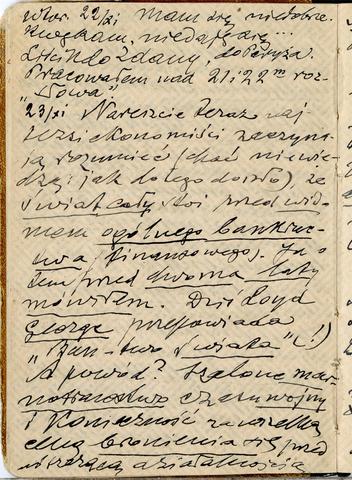 Wtor. 22/xi mam się niedobrze.
niedaję się...
do Paryża.
Pracowałem nad 21 i 22m roz-
"Nowa"
23/xi Nareszcie teraz naj-
więksi ekonomiści zaczyna-
ją rozumieć (choć niewie-
dzą jak do tego doszło), że
świat cały stoi przed wid-
mem ogólnego bankruc-
twa (finansowego). Ja o
tem przed dwoma laty
mówiłem. Dziś Loyd
George przepowiada
"Ban-two świata" (!)
A powód? Szalone mar-
notrawstwo czasu wojny
i Konieczność za wszelką
cenę bronienia się przed
działalnością